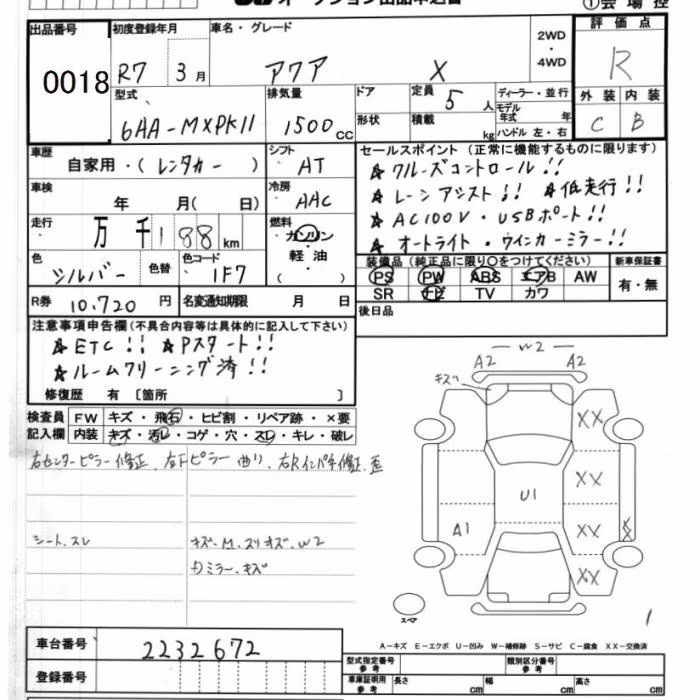 オークション出品申込書
①会場控
出品番号
0018
初度登録年月
R7 3月
車名・グレード
アクア X
2WD
・
4WD
評価点
R
型式
6AA-MXPK11
排気量
1500 CC
ドア
形状
定員 5 人
積載 kg
ディーラー・並行
モデル年式 年
ハンドル 左・右
外装 内装
C B
車歴
自家用・(レンタカー)
シフト
AT
車検
年 月(日)
冷房
AAC
走行
万 千188km
燃料
ガソリン
軽油
( )
色
シルバー
色替
色コード
1F7
R券 10,720 円
名変通知期限 月 日
セールスポイント(正常に機能するものに限ります)
★クルーズコントロール!!
★レーンアシスト!! ★低走行!!
★AC100V・USBポート!!
★オートライト・ウインカーミラー!!
装備品(純正品に限り○をつけてください)
PS PW ABS エアB AW
SR ナビ TV カワ
新車保証書
有・無
後日品
注意事項申告欄(不具合内容等は具体的に記入して下さい)
★ETC!! ★Pスタート!!
★ルームクリーニング済!!
修復歴 有〔箇所 〕
検査員記入欄
FW キズ・飛石・ヒビ割・リペア跡・×要
内装 キズ・汚レ・コゲ・穴・スレ・キレ・破レ
右センターピラー修正、右Fピラー曲り、右Rインパネ修正、歪
シート、スレ
キズ、M、スリキズ、W2
カミラー、キズ
W2
A2 A2
キズ
XX
XX
U1
A1
XX
XX
XX
スペア
1
A-キズ E-エクボ U-凹み W-補修跡 S-サビ C-腐食 XX-交換済
車台番号 2232672
登録番号
型式指定番号参考
類別区分番号参考
車庫証明用参考
長さ cm 幅 cm 高さ cm